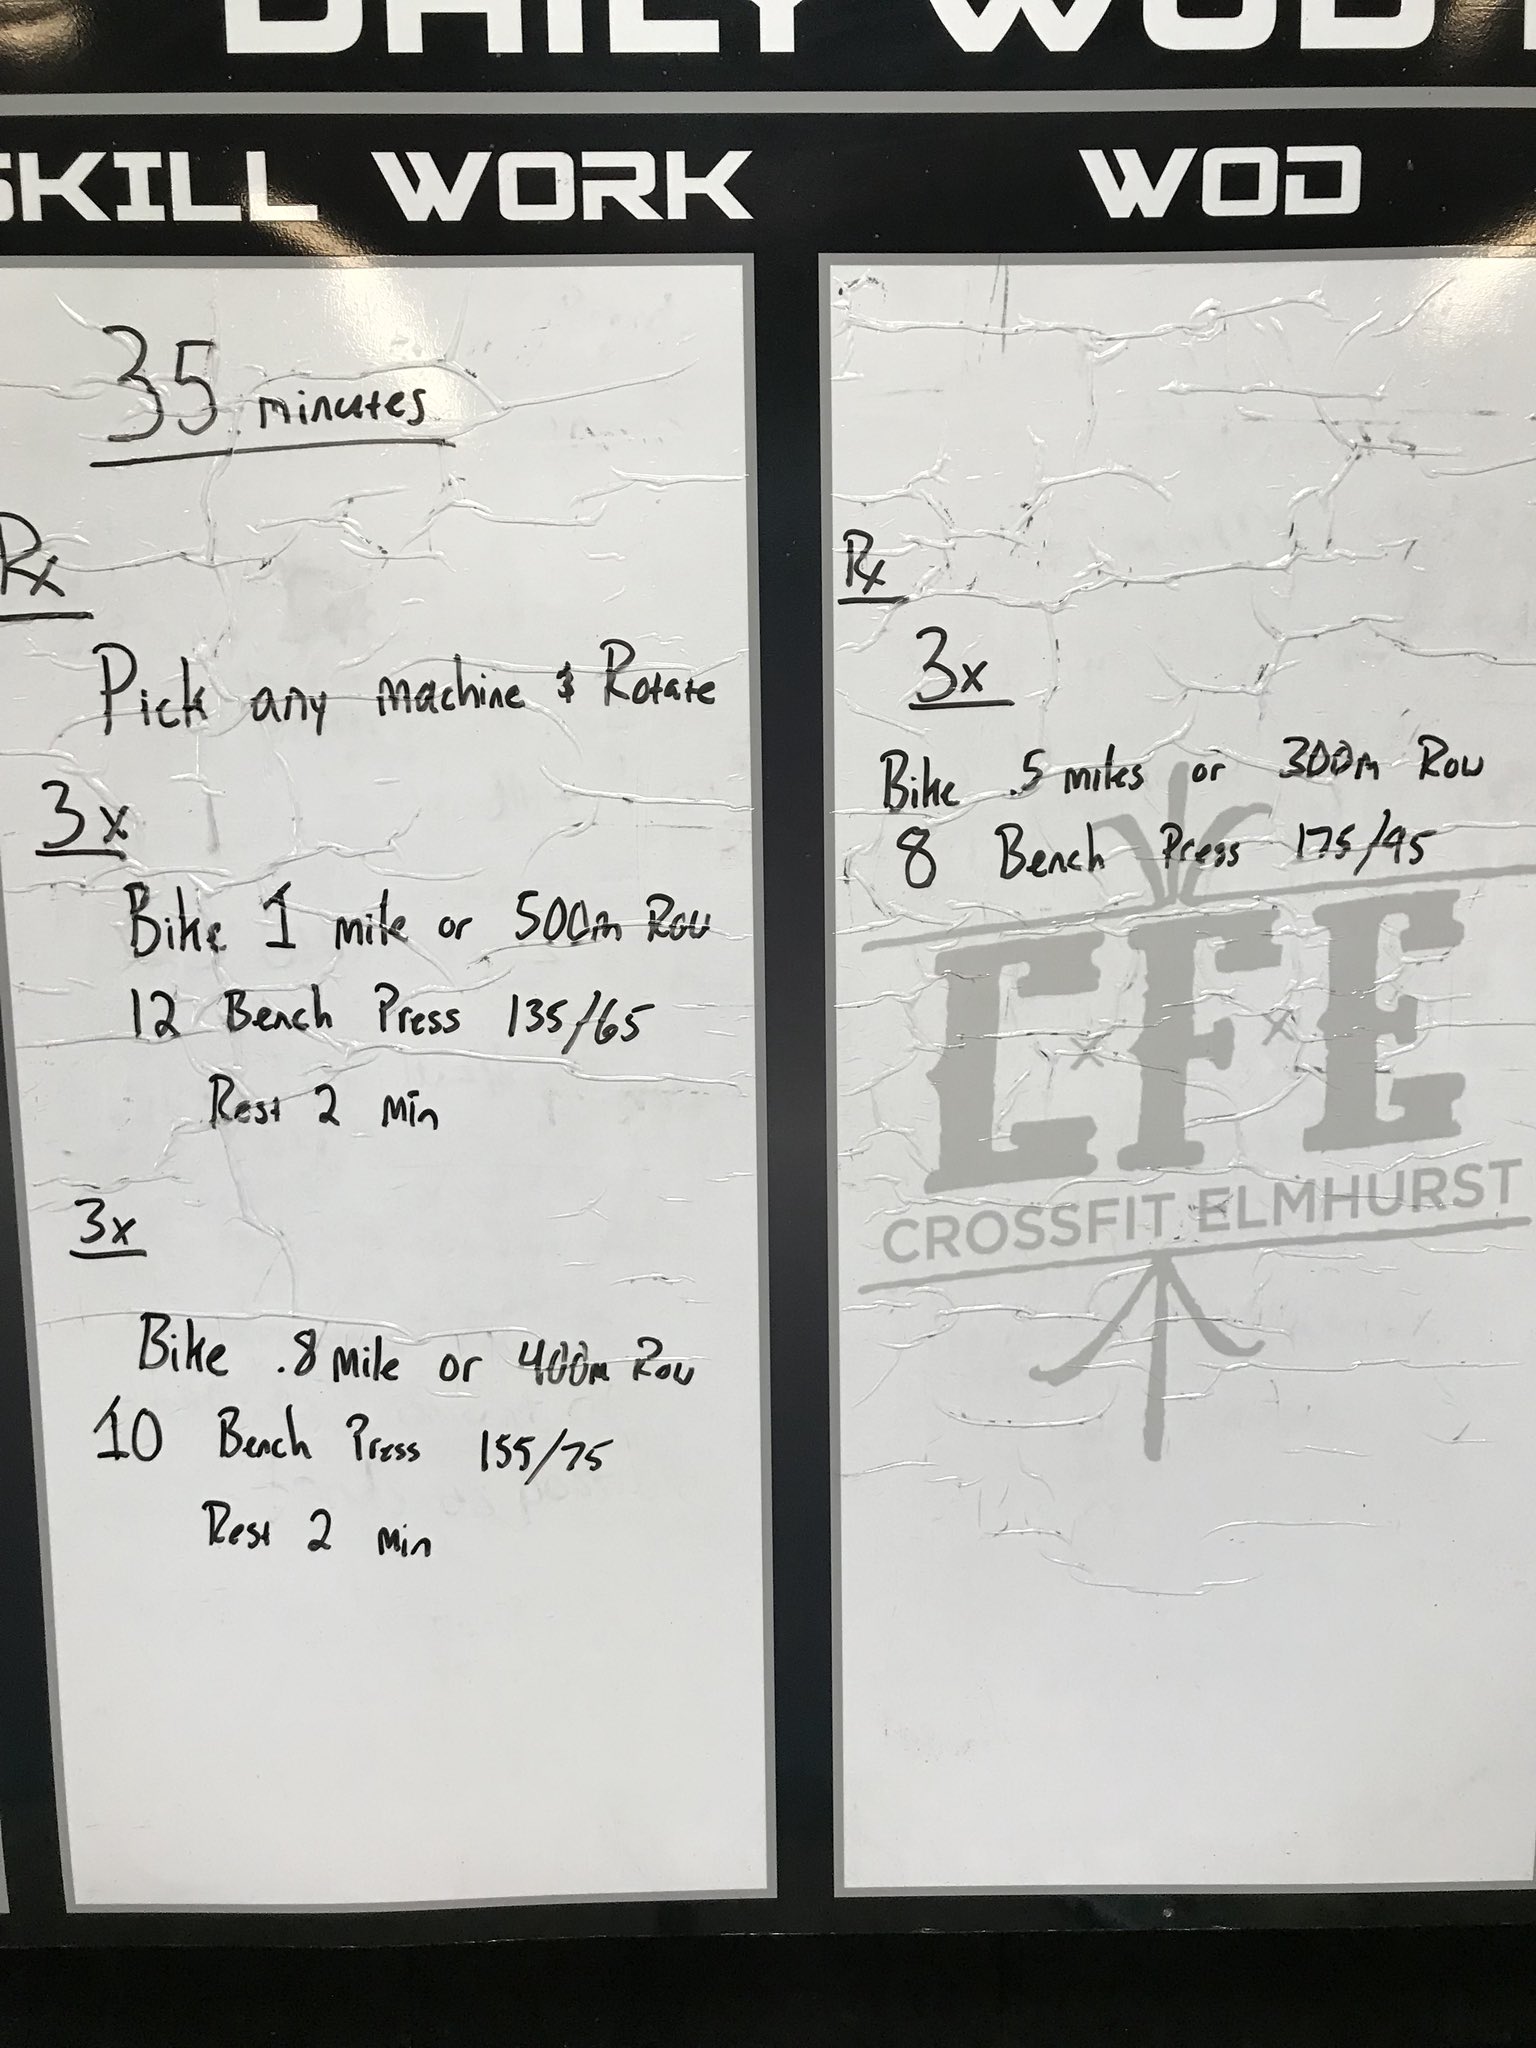 DAILY WOD
SKILL WORK
35 minutes
Rx
Pick any machine & Rotate
3x
Bike 1 mile or 500m Row
12 Bench Press 135/65
Rest 2 min
3x
Bike .8 mile or 400m Row
10 Bench Press 155/75
Rest 2 min
WOD
Rx
3x
Bike .5 miles or 300m Row
8 Bench Press 175/95
CFE
CROSSFIT ELMHURST